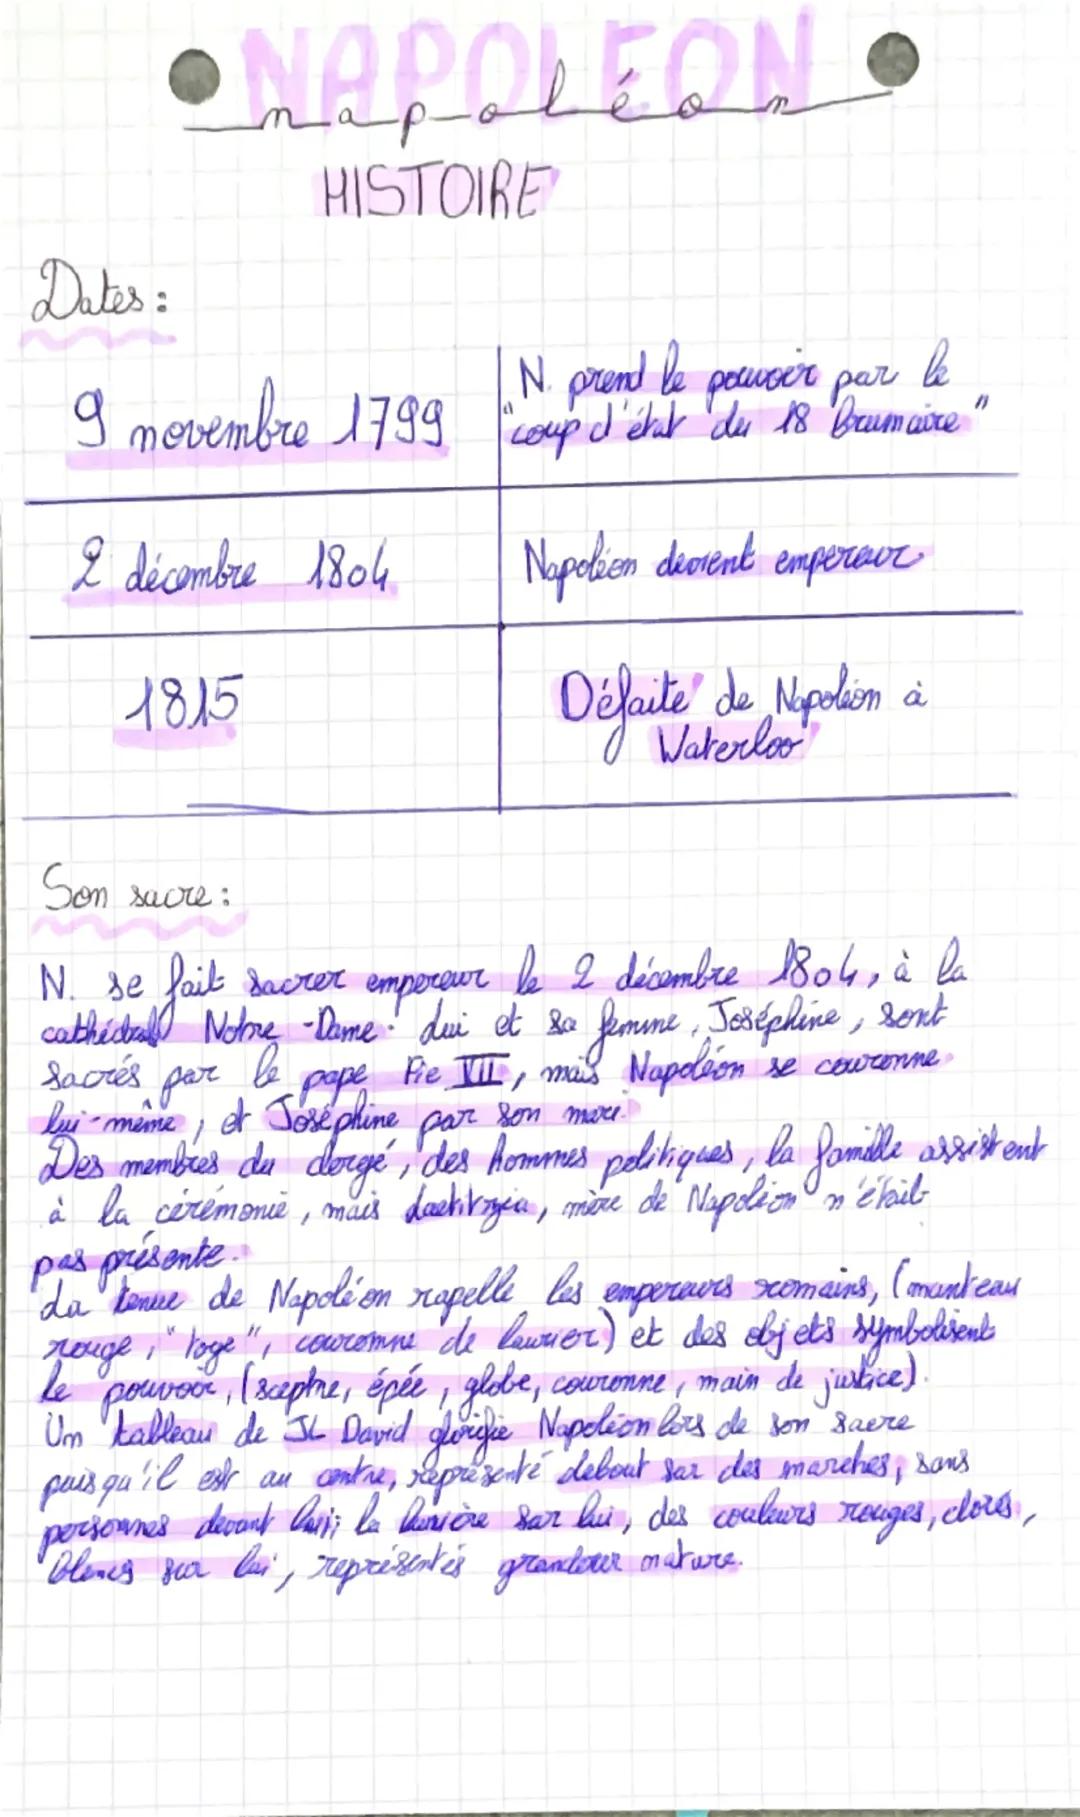 NAPOLEON
napoléon
HISTOIRE
Dates :
9 novembre 1799
N. prend le pouvoir par le
"coup d'état du 18 Brumaire"
2 décembre 1804
Napoléon devient empereur
1815
Défaite de Napoléon à
Waterloo
Son sacre :
N. se fait sacrer empereur le 2 décembre 1804, à la
cathédrale Notre-Dame. Lui et sa femme, Joséphine, sont
sacrés par le pape Pie VII, mais Napoléon se couronne
lui-même, et Joséphine par son mari.
Des membres du clergé, des hommes politiques, la famille assistent
à la cérémonie, mais Laetitzia, mère de Napoléon n'était
pas présente.
La tenue de Napoléon rapelle les empereurs romains, (manteau
rouge, "toge", couronne de laurier) et des objets symbolisent
le pouvoir, (sceptre, épée, globe, couronne, main de justice).
Un tableau de JL David glorifie Napoléon lors de son sacre
puisqu'il est au centre, représenté debout sur des marches, sans
personnes devant lui; la lumière sur lui, des couleurs rouges, dorés,
blancs sur lui, représentés grandeur nature.